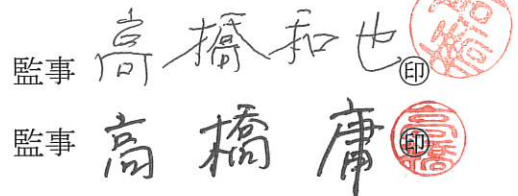 監事 高橋和也 ㊞
監事 高橋庸 ㊞